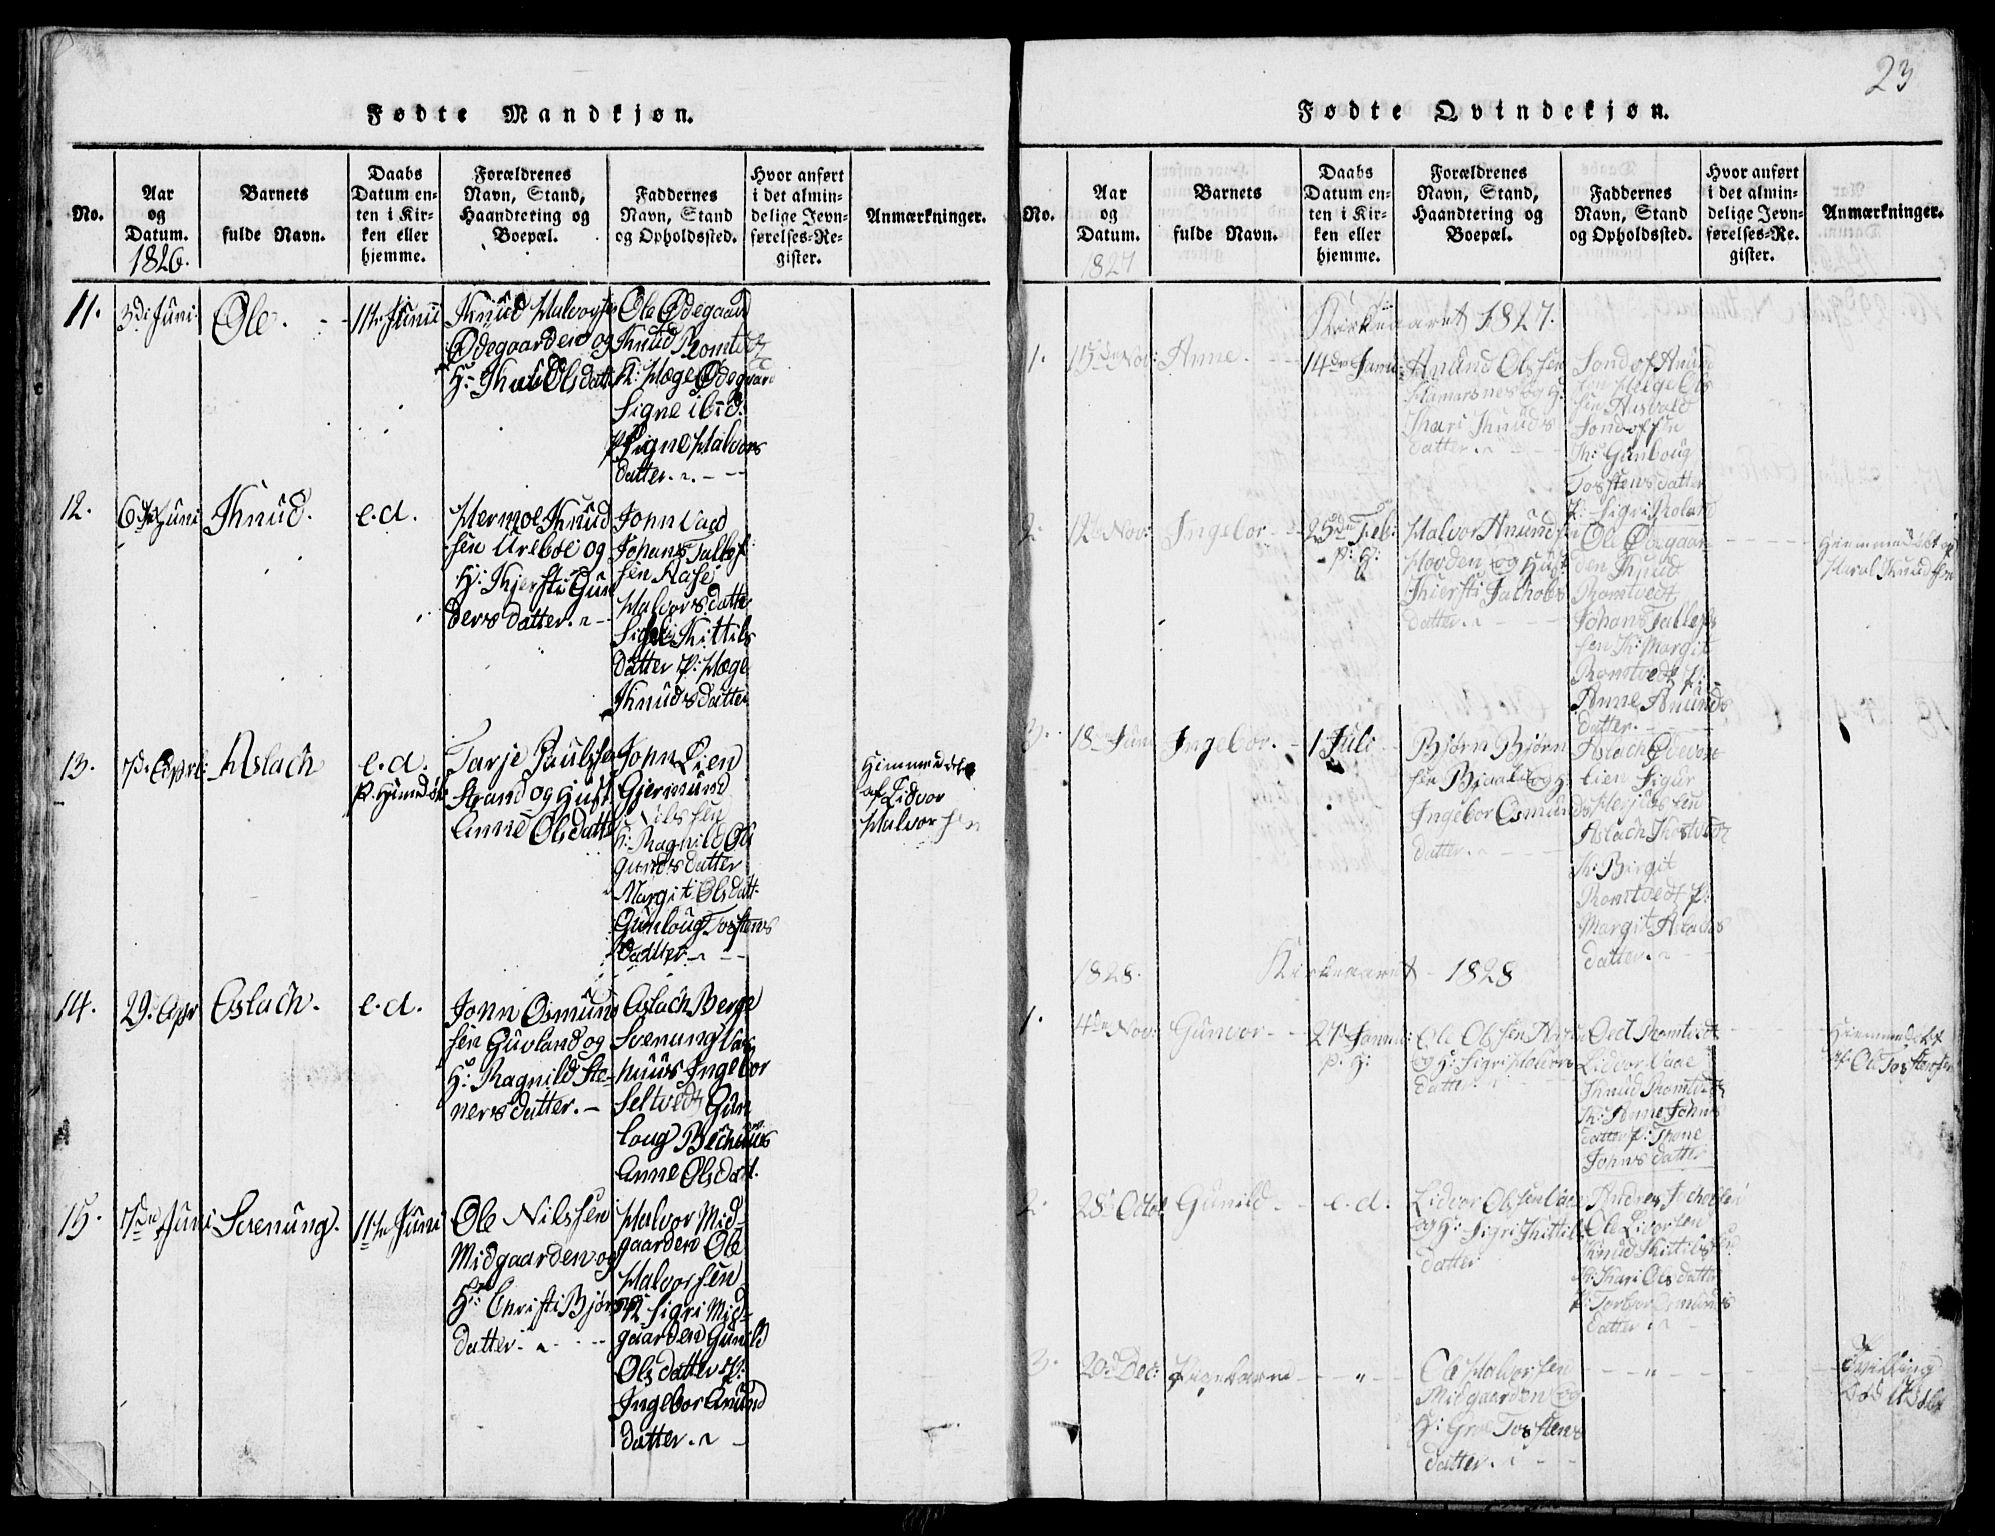 Fødte Mandkjøn.
No.
Aar
og
Datum.
1826.
Barnets
fulde Navn.
Daabs
Datum en-
ten i Kir-
ken eller
hjemme.
Forældrenes
Navn, Stand,
Haandtering og
Boepæl.
Faddernes
Navn, Stand
og Opholdssted.
Hvor anført
i det almin-
delige Jevn-
førelses-Re-
gister.
Anmærkninger.
11.
3di Juni.
Ole.
11te Junii
Knud Halvorsen
Ødegaarden og
H: Olsdatt
Ole Ødegaard
Knud Romtvet
K: Hæge Ødegaard
Signe ibid:
P: Signe Halvors
datter.
12.
6te Juni
Knud.
e.d.
Hermoe Knud
sen Ureboe og
H: Kjersti Gun
ders datter.
John Vaa
Johans Tallef
sen Aase
Halvors datter
Kittils
datter P: Hæge
Knuds datter
13.
7d: Aprl:
Aslach
e.d.
P. Hiemdøbt
Tarje Paulsen
Strand og Hust
Anne Olsdatter
John Øien
Gjermund
Nilssen
K: Ragnild Ols
Margit Olsdatt.
Gunloug Tostens
datter
Hiemmedøbt
af Lidvor
Halvorsen
14.
29. Apr
Aslach.
e.d.
John Osmund
sen Guvland og
H: Ragnild Ste-
ners datter.
Aslach Berge
Svenung Bæc
huus Ingebor
Seltvedt Gun
loug Bechuus
Anne Olsdat.
15.
7de Juni
Svenung.
11te Juni
Ole Nilssen
Midgaarden og
H: Christi Bjørns
datter.
Halvor Mid-
gaarden Ole
Halvorsen
K. Sigri Mid-
gaarden Gunild
Olsdatter P:
Ingebor Anund
datter.
23
Fødte Qvindekjøn.
No.
Aar
og
Datum.
1827
Barnets
fulde Navn.
Daabs
Datum en-
ten i Kir-
ken eller
hjemme.
Forældrenes
Navn, Stand,
Haandtering og
Boepæl.
Faddernes
Navn, Stand
og Opholdssted.
Hvor anført
i det almin-
delige Jevn-
førelses-Re-
gister.
Anmærkninger.
Kirkeaaret 1827.
1.
15de Nov:
Anne.
14de Janu:
Anund Olssen
Hamarsnes og H:
Kari Knuds
datter.
Jondof Anund
sen Hæge Ols
Jondofsen
K: Gunloug
Tostens datter
P: Sigri Roland
2.
12te Nov:
Ingebor
25de Feb:
P: H:
Halvor Anundsen
Hovden og Hust
Kiersti Jachobs
datter.
Ole Ødegaar
den Knud
Romtvedt
Johans Tallefs
sen K: Margit
Romtvedt P:
Anne Anunds
datter.
Hiemmedøbt af
Knudsen
3.
18 Juni
Ingebor.
1 Juli
Bjørn Bjørn
sen Bjaaland og H:
Ingebor Osmunds
datter.
Aslach Ødevas
lien Sigur
Herjus sen
Aslach Kostvedt
K: Birgit
Romtvedt P:
Margit Aslachs
datter.
1828.
Kirkeaaret 1828
1.
4de Nov:
Gunvor
27 Janu:
P: H:
Ole Olssen
og H: Sigri Halvors
datter.
Oed Romtvedt
Lidvor Vaae
Knud Romtvedt
K: Anne Johns
datter P: Thone
Johns datter
Hiemmedøbt
af Ole Tostensen
2.
28 Octob
Gunild
e.d.
Lidvor Olssen Vaa
og H: Sigri Kittils
datter
Andres Jachobsen
Ole Livorsen
Knud Kittilssen
K: Kari Olsdatter
P: Torbor Osmunds
datter
3.
20 Dec:
Pigebarn
Ole Halvorsen
Midgaarden og
H: Groe Tostens
datter.
Tvilling
Død Udøbt